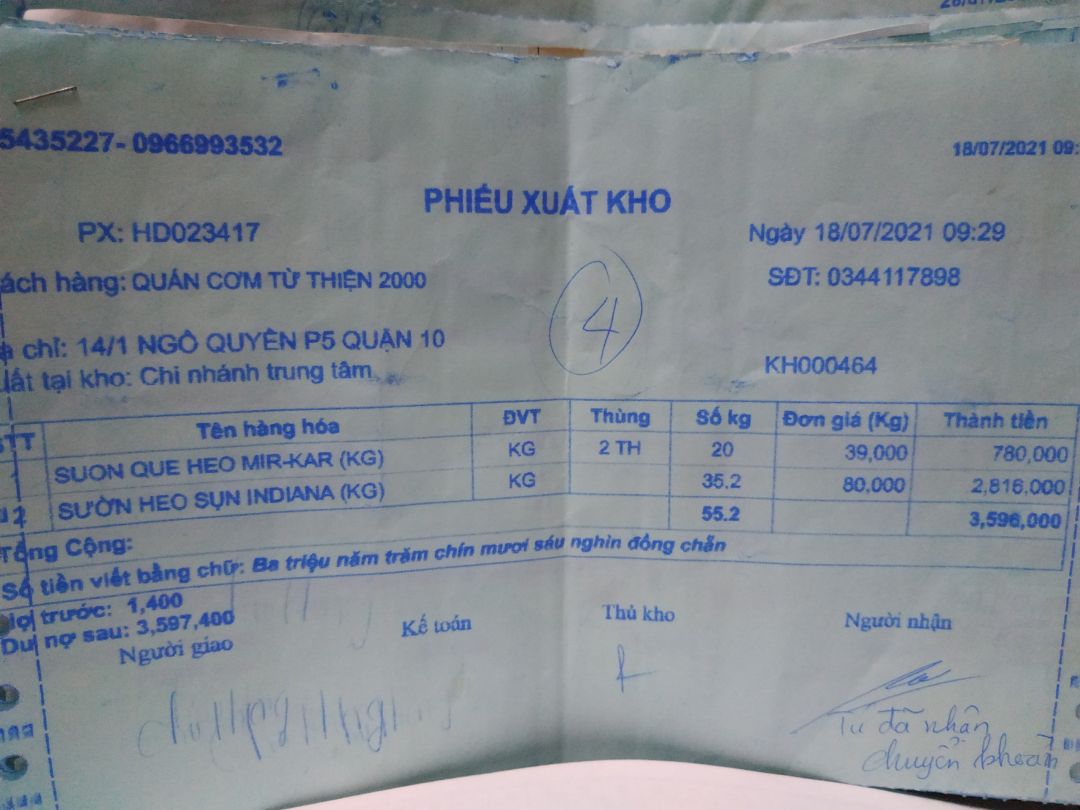 5435227- 0966993532
18/07/2021 09:
PHIẾU XUẤT KHO
PX: HD023417
Ngày 18/07/2021 09:29
ách hàng: QUÁN CƠM TỪ THIỆN 2000
SĐT: 0344117898
4
chỉ: 14/1 NGÔ QUYỀN P5 QUẬN 10
uất tại kho: Chi nhánh trung tâm
KH000464
STT Tên hàng hóa ĐVT Thùng Số kg Đơn giá (Kg) Thành tiền
1 SUON QUE HEO MIR-KAR (KG) KG 2 TH 20 39,000 780,000
2 SƯỜN HEO SỤN INDIANA (KG) KG 35.2 80,000 2,816,000
Tổng Cộng: 55.2 3,596,000
Số tiền viết bằng chữ: Ba triệu năm trăm chín mươi sáu nghìn đồng chẵn
Nợ trước: 1,400
Dư nợ sau: 3,597,400
Người giao Kế toán Thủ kho Người nhận
Tú đã nhận
chuyển khoản